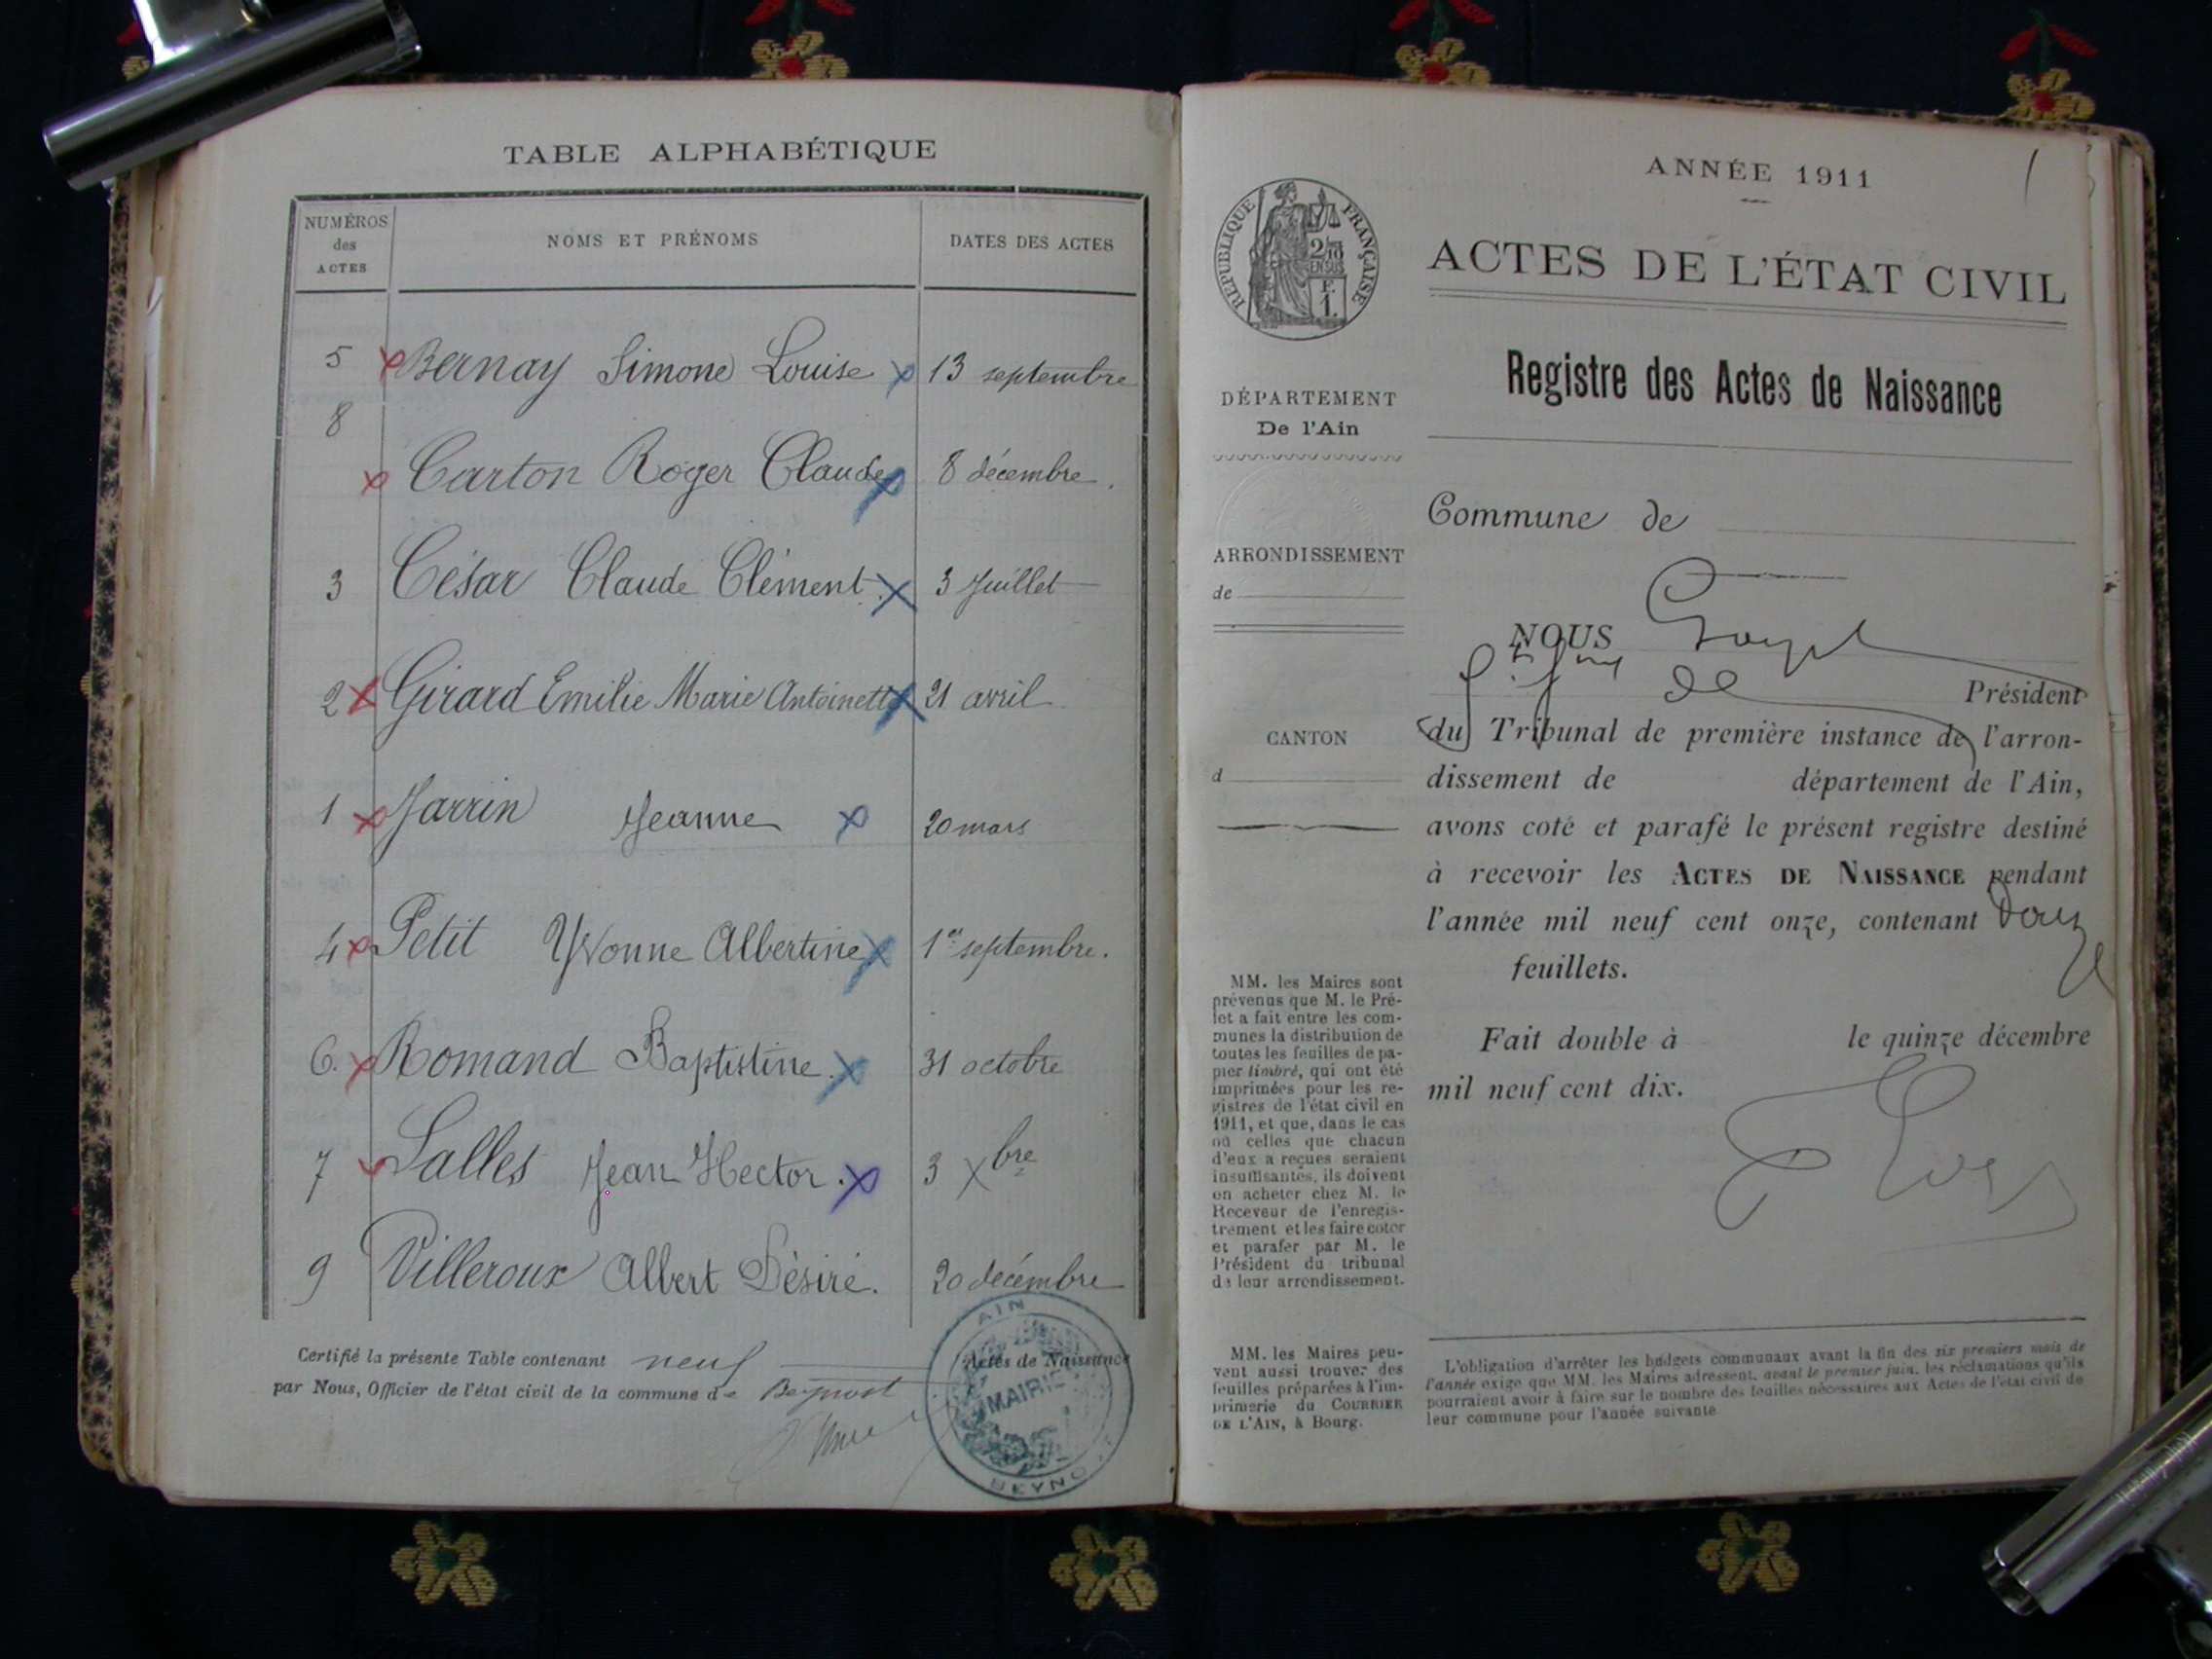 TABLE ALPHABÉTIQUE
NUMÉROS
des
ACTES
NOMS ET PRÉNOMS
DATES DES ACTES
5 Bernay Simone Louise 13 septembre
8
Carton Roger Claude 8 décembre.
3 César Claude Clément. 3 Juillet
2 Girard Emilie Marie Antoinette 21 avril
1 Jarrin Jeanne 20 mars
4 Petit Yvonne Albertine 1er septembre.
6. Romand Baptistine. 31 octobre
7 Salles Jean Hector. 3 Xbre
9 Villeroux Albert Désiré. 20 décembre
Certifié la présente Table contenant neuf Actes de Naissance
par Nous, Officier de l'état civil de la commune de Beynost
AIN
MAIRIE
BEYNO
ANNÉE 1911
1
RÉPUBLIQUE FRANÇAISE
2/10
EN SUS
F.
1.
ACTES DE L'ÉTAT CIVIL
Registre des Actes de Naissance
DÉPARTEMENT
De l'Ain
Commune de
ARRONDISSEMENT
de
NOUS
Président
CANTON
d
du Tribunal de première instance de l'arron-
dissement de département de l'Ain,
avons coté et parafé le présent registre destiné
à recevoir les ACTES DE NAISSANCE pendant
l'année mil neuf cent onze, contenant douze
feuillets.
Fait double à le quinze décembre
mil neuf cent dix.
MM. les Maires sont
prévenus que M. le Pré-
fet a fait entre les com-
munes la distribution de
toutes les feuilles de pa-
pier timbré, qui ont été
imprimées pour les re-
gistres de l'état civil en
1911, et que, dans le cas
où celles que chacun
d'eux a reçues seraient
insuffisantes, ils doivent
en acheter chez M. le
Receveur de l'enregis-
trement et les faire coter
et parafer par M. le
Président du tribunal
de leur arrondissement.
MM. les Maires peu-
vent aussi trouver des
feuilles préparées à l'im-
primerie du COURRIER
DE L'AIN, à Bourg.
L'obligation d'arrêter les budgets communaux avant la fin des six premiers mois de
l'année exige que MM. les Maires adressent, avant le premier juin, les réclamations qu'ils
pourraient avoir à faire sur le nombre des feuilles nécessaires aux Actes de l'état civil de
leur commune pour l'année suivante